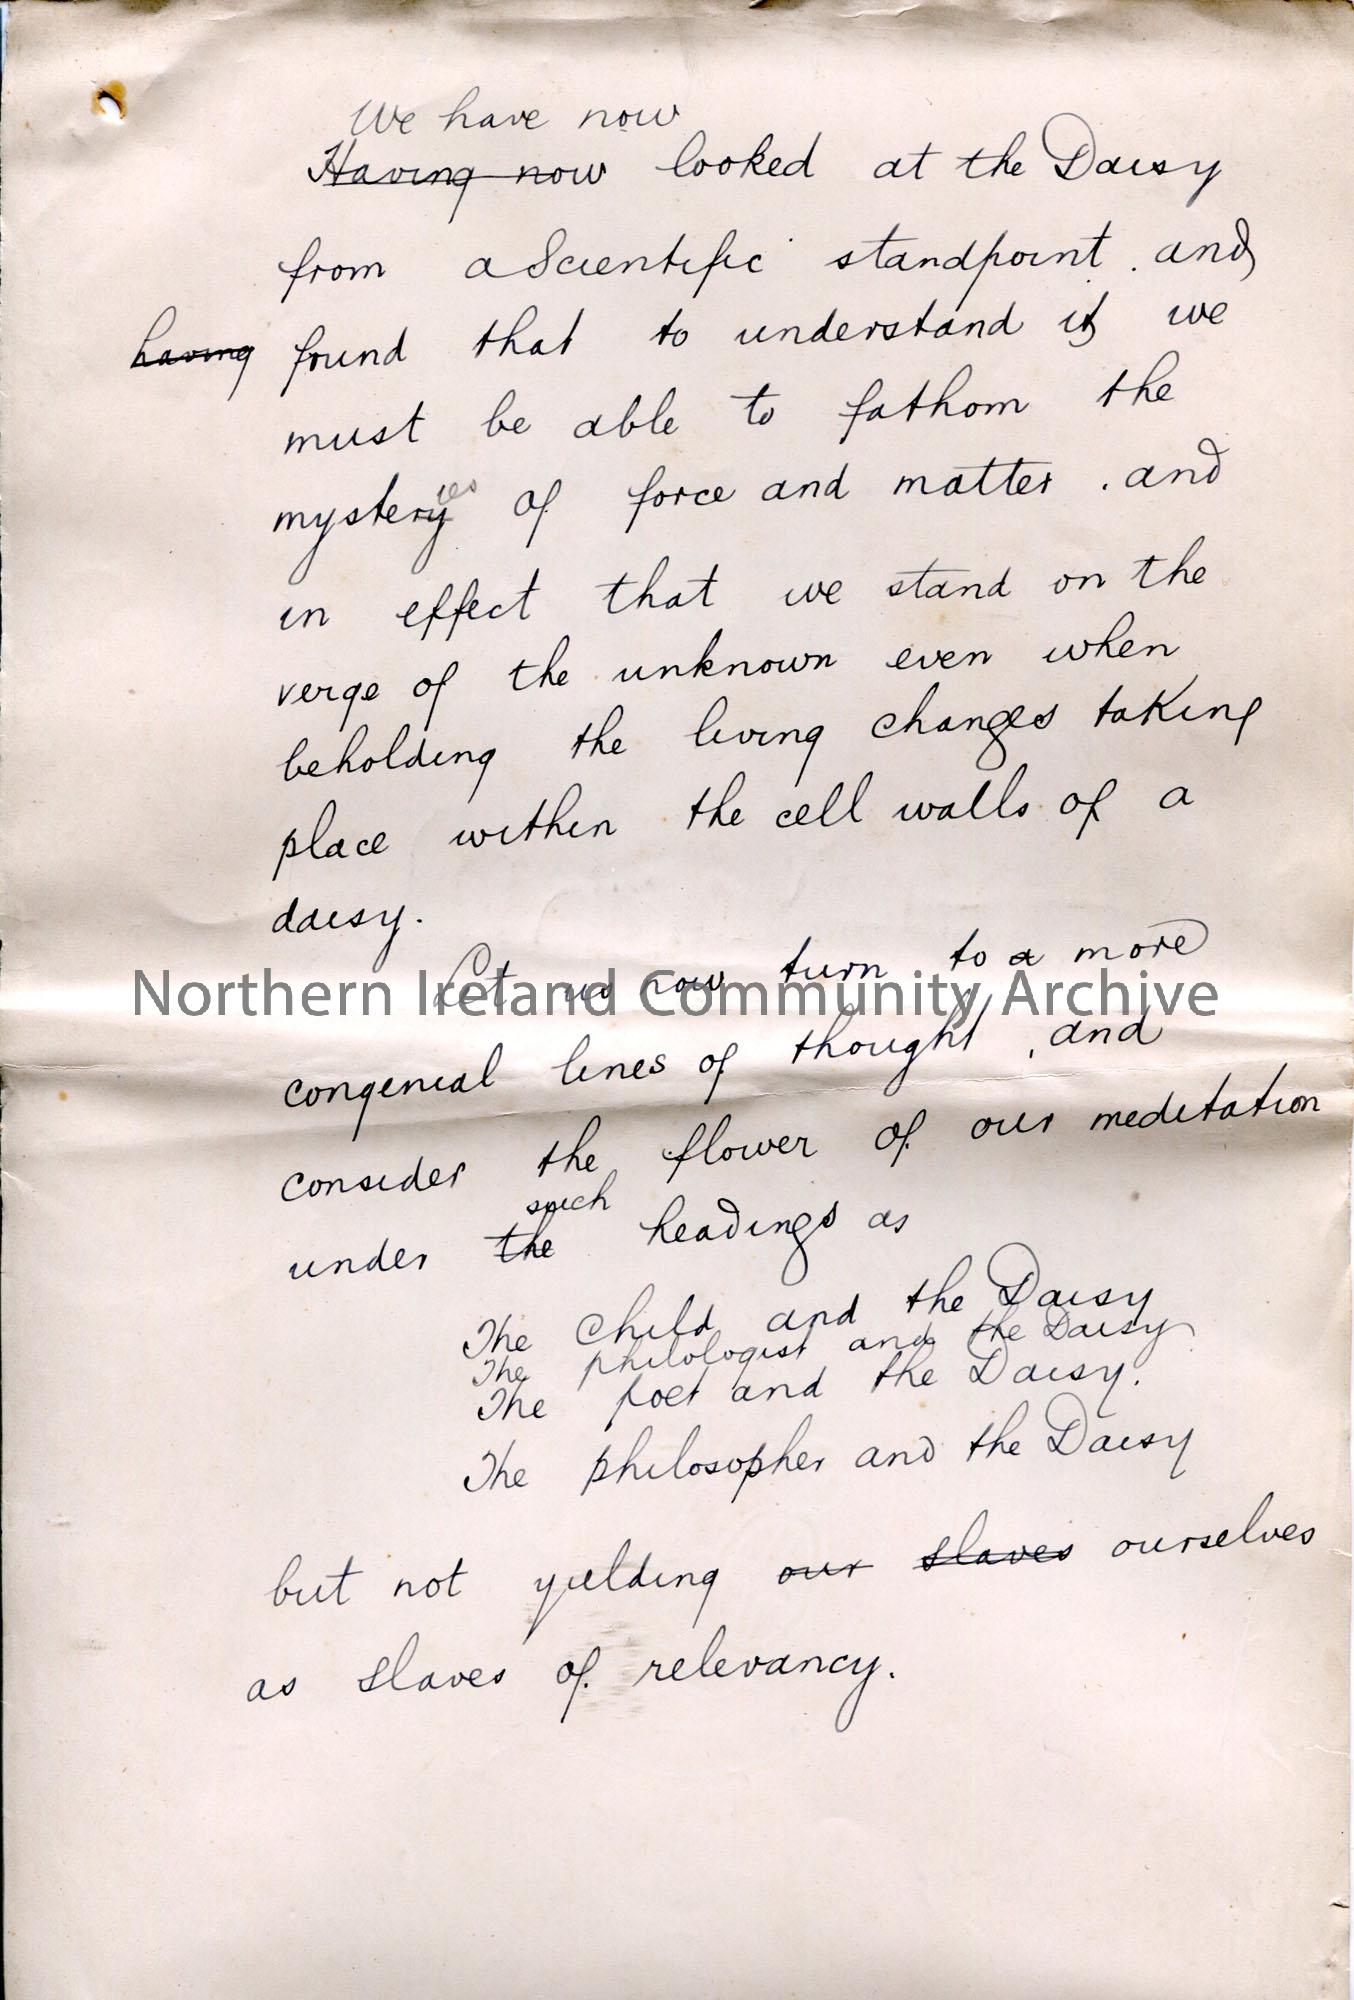 We have now
Having now looked at the Daisy
from a Scientific standpoint. and
having found that to understand it we
must be able to fathom the
ies
mystery of force and matter. and
in effect that we stand on the
verge of the unknown even when
beholding the living changes taking
place within the cell walls of a
daisy.
Let us now turn to a more
Northern Ireland Community Archive
congenial lines of thought, and
consider the flower of our meditation
such
under the headings as
The Child and the Daisy
The philologist and the Daisy
The poet and the Daisy.
The philosopher and the Daisy
but not yielding our slaves ourselves
as slaves of relevancy.